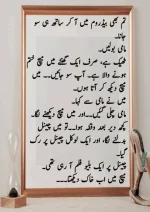 تم بھی بیڈروم میں آ کر ساتھ ہی سو
جانا۔
مامی بولیں۔
ٹھیک ہے، صرف ایک گھنٹے میں میچ ختم
ہونے والا ہے۔ آپ سو جائیں۔۔ میں
میچ دیکھ کر آتا ہوں۔
میں نے مامی سے کہا۔
مامی چلی گئیں۔۔ اور میں میچ دیکھنے لگا۔
کچھ دیر بعد وقفہ ہوا۔۔ تو میں چینل
بدلنے لگا۔ اور ایک لوکل چینل پر رک
گیا۔
چینل پر ایک بلیو فلم آ رہی تھی۔
میچ میں اب خاک دیکھتا۔۔۔